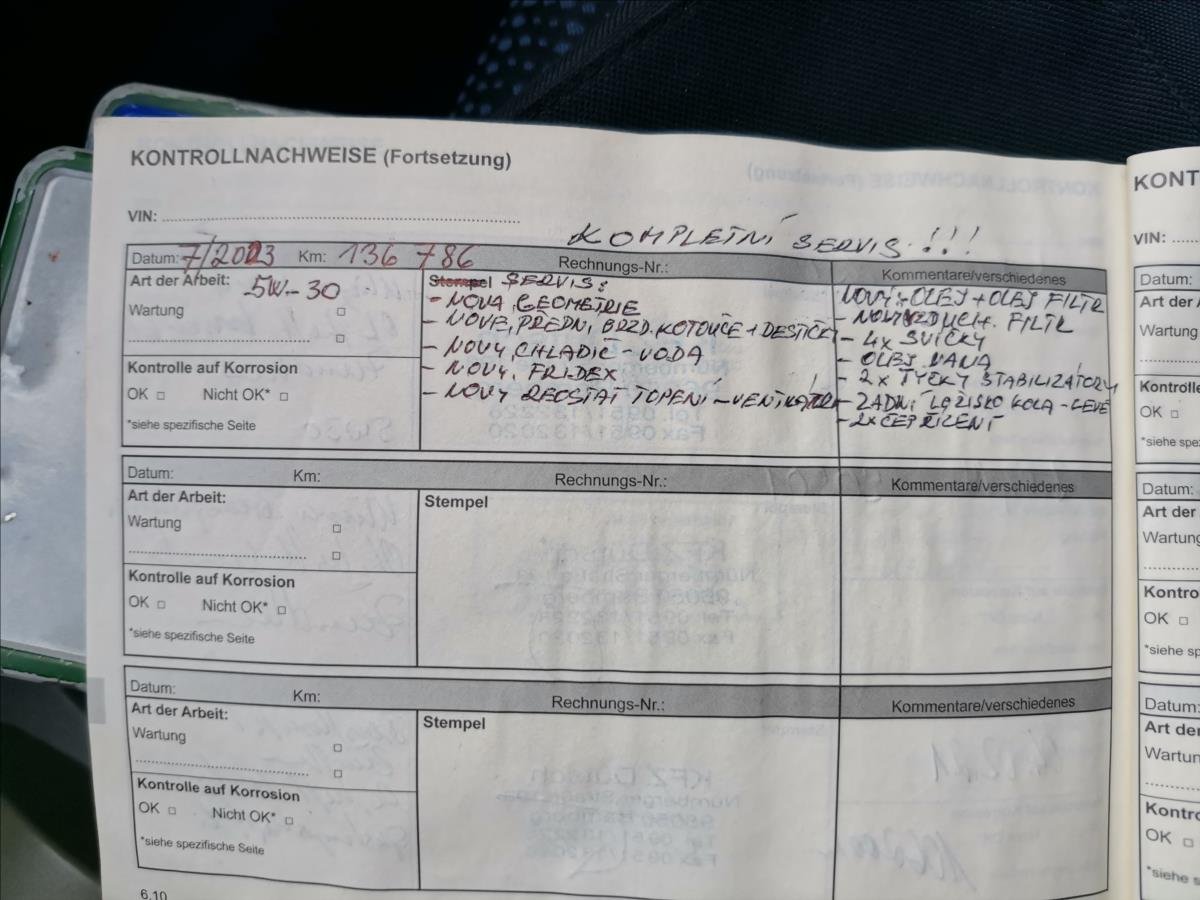 KONTROLLNACHWEISE (Fortsetzung)
VIN:
KOMPLETNÍ SERVIS!!!
Datum: 7/2023 Km: 136 786 Rechnungs-Nr.: Kommentare/verschiedenes
Art der Arbeit: 5W-30
Wartung
Kontrolle auf Korrosion
OK Nicht OK*
*siehe spezifische Seite
Stempel SERVIS:
- NOVA GEOMETRIE
- NOVÉ, PŘEDNÍ, BRZD. KOTOUČE + DESTIČKY
- NOVÝ, CHLADIČ - VODA
- NOVÝ, FRIDEX
- NOVÝ REOSTAT TOPENÍ - VENTILÁTOR
NOVÝ - OLEJ + OLEJ FILTR
- NOVÝ VZDUCH. FILTR
- 4x SVÍČKY
- OLEJ. VANA
- 2x TYČKY STABILIZÁTORU
- ZADNÍ LOŽISKO KOLA - LEVÉ
- 2x ČEP ŘÍZENÍ
Datum: Km: Rechnungs-Nr.: Kommentare/verschiedenes
Art der Arbeit:
Wartung
Kontrolle auf Korrosion
OK Nicht OK*
*siehe spezifische Seite
Stempel
Datum: Km: Rechnungs-Nr.: Kommentare/verschiedenes
Art der Arbeit:
Wartung
Kontrolle auf Korrosion
OK Nicht OK*
*siehe spezifische Seite
Stempel
6.10
KONT
VIN:
Datum:
Art der
Wartung
Kontrolle
OK
*siehe spez
Datum:
Art der
Wartung
Kontro
OK
*siehe sp
Datum:
Art de
Wartun
Kontro
OK
*siehe